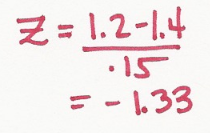 Z = 1.2-1.4
.15
= -1.33